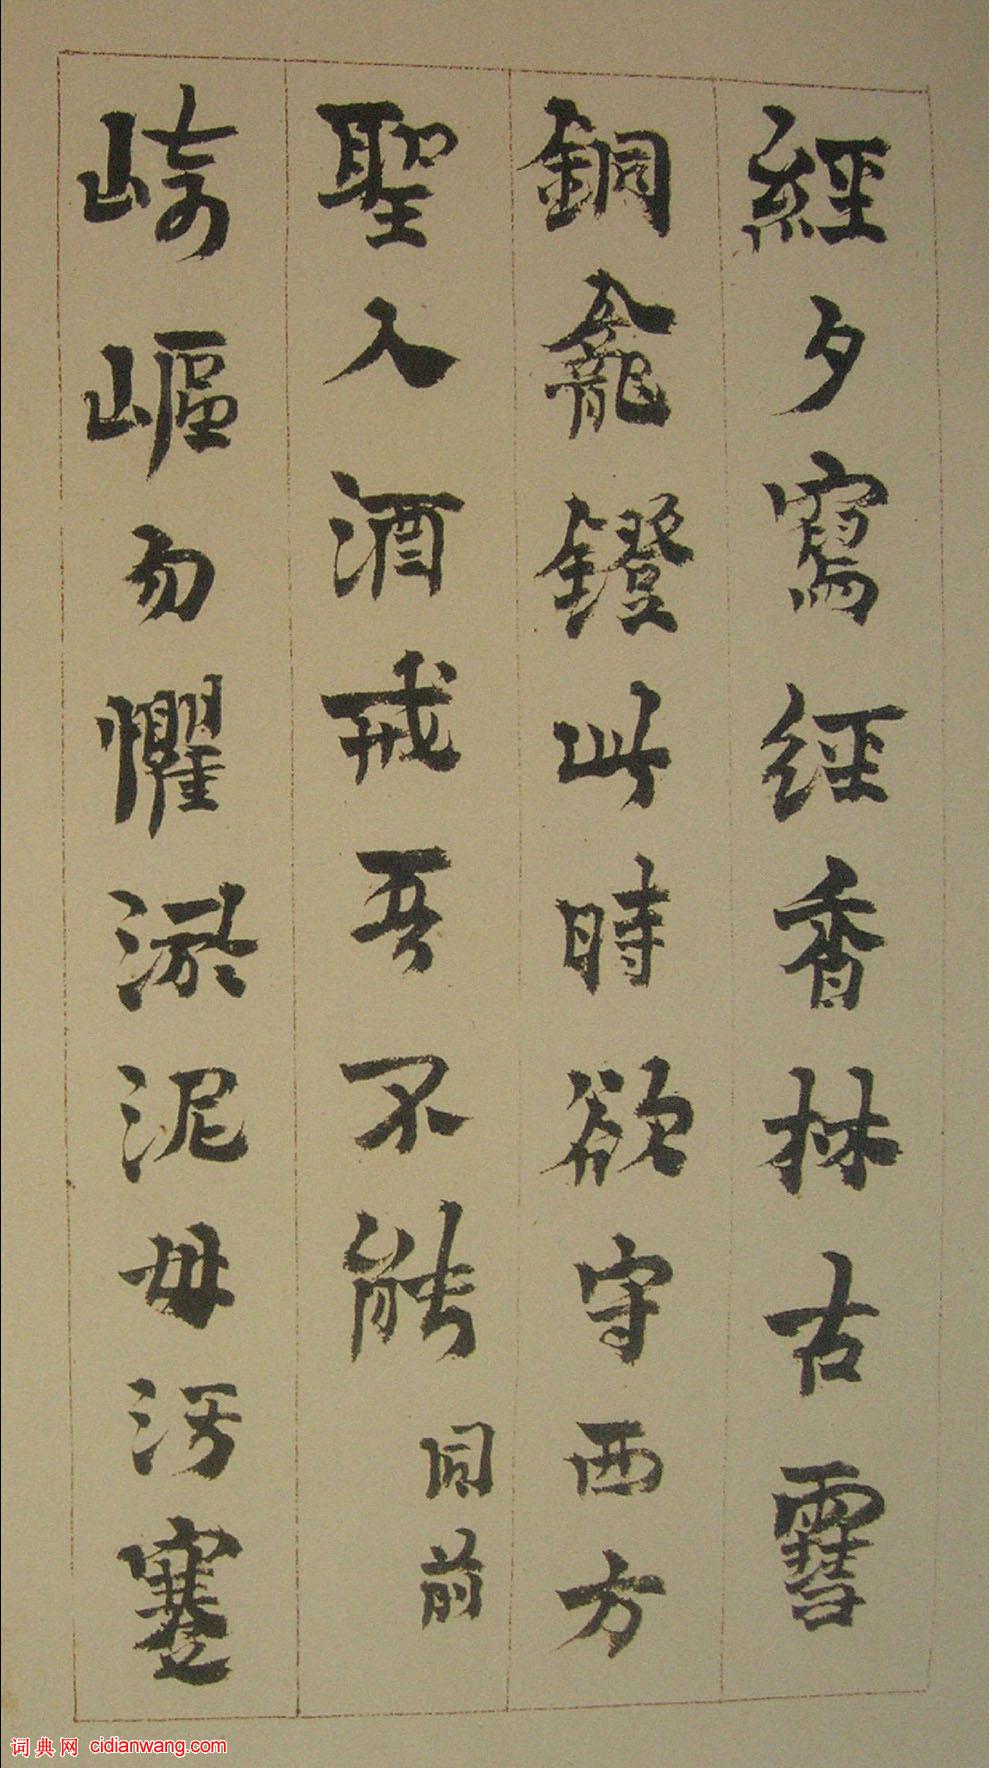 經夕寫經香林古雪
銅龕鐙此時欲守西方
聖人酒戒吾不能
同前
崎嶇勿懼淤泥毋污蹇
词典网 cidianwang.com